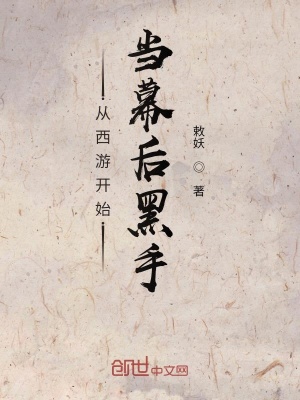 从西游开始
当幕后黑手
敕妖 ◎ 著
创世中文网